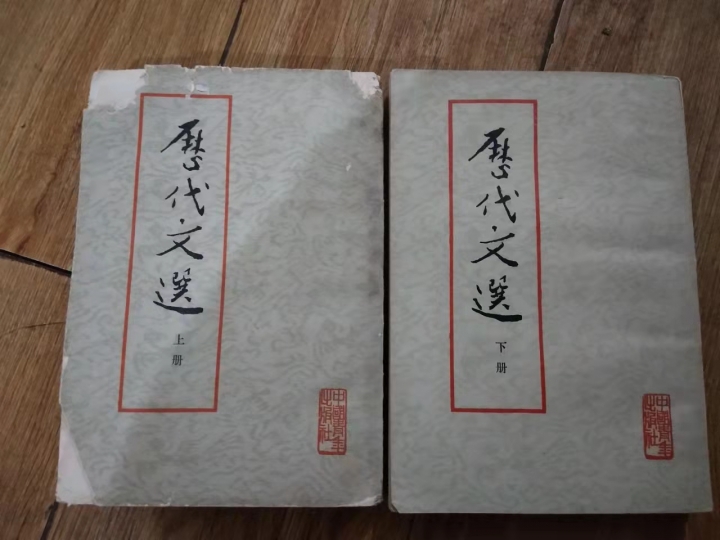 歷代文選
上册
中國青年
出版社
歷代文選
下册
中國青年
出版社